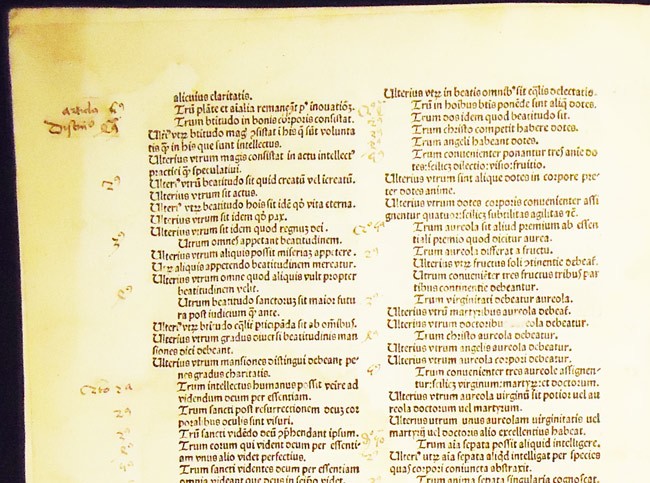 alicuius claritatis.
Trū plāte et aialia remaneāt pꝰ inouatiōꝫ.
Trum btitudo in bonis corporis consistat.
Ulteriꝰ vtrꝫ btitudo magꝭ ꝯsistat i his q̄ sūt volunta
tis q̄ȝ in his que sunt intellectus.
Ulterius vtrum magis consistat in actu intellectꝰ
practici q̄ȝ speculatiui.
Ulteriꝰ vtrū beatitudo sit quid creatū vel īcreatū.
Ulterius vtrum sit actus.
Ulteriꝰ vtrꝫ btitudo hoīs sit idē qḋ vita eterna.
Ulterius vtrum sit idem qḋ pax.
Ulterius vtrum sit idem quod regnuꝫ dei.
Utrum omnes appetant beatitudinem.
Ulterius vtrum aliquis possit miseriaꝫ appetere.
aliquis appetendo beatitudinem mereatur.
Ulterius vtrum omne quod aliquis vult propter
beatitudinem velit.
Utrum beatitudo sanctoruꝫ sit maior futu
ra post iudicium q̄ȝ ante.
Ulteriꝰ vtrꝫ btitudo eq̄liter pticipāda sit ab omībus.
Ulterius vtrum gradus diuersi beatitudinis man
siones dici debeant.
Ulterius vtrum mansiones distingui debeant pe
nes gradus charitatis.
Trum intellectus humanus possit venire ad
videndum deum per essentiam.
Trum sancti post resurrectionem deuꝫ cor
poralibus oculis sint visuri.
Trū sancti vidēdo deū ꝯp̄hendant ipsum.
Trum eorum qui vident deum per essenti
am vnus alio videt perfectius.
Trum sancti videntes deum per essentiam
omnia videant que deus in seipō videt.
Ulterius vtrꝫ in beatis omnibꝰ sit eq̄lis delectatio.
Trū in hoībus btis ponēde sint aliq̄ dotes.
Trum dos idem quod beatitudo sit.
Trum christo competit habere dotes.
Trum angeli habeant dotes.
Trum conuenienter ponantur tres anime do
tes: scilicꝫ dilectio: visio: fruitio.
Ulterius vtrum sint alique dotes in corpore pre
ter dotes anime.
Ulterius vtrum dotes corporis conuenienter assi
gnentur quatuor: scilicꝫ subtilitas agilitas ⁊c̄.
Trum aureola sit aliud premium ab essen
tiali premio quod dicitur aurea.
Trum aureola differat a fructu.
Ulterius vtrꝫ fructus soli ꝯtinentie debeat.
Utrum conueniēter tres fructus tribus par
tibus continentie debeantur.
Trum virginitati debeatur aureola.
Ulterius vtrū martyribus aureola debeat.
Ulterius vtrum doctoribus aureola debeatur.
Trum christo aureola debeatur.
Ulterius vtrum angelis aureola debeatur.
Ulterius vtrum aureola corpori debeatur.
Trum conuenienter tres aureole assignen
tur: scilicꝫ virginum: martyrꝫ: et doctorum.
Ulterius vtrum aureola virginū sit potior vel au
reola doctorum vel martyrum.
Ulterius utrum unus aureolam virginitatis uel
martyrij uel doctoris alio excellentius habeat.
Trum aīa sepata possit aliquid intelligere.
Ulteriꝰ vtꝫ aīa sepata aliqḋ intelligat per species
quas corpori coniuncta abstraxit.
Trum anima sepata singularia cognoscat.